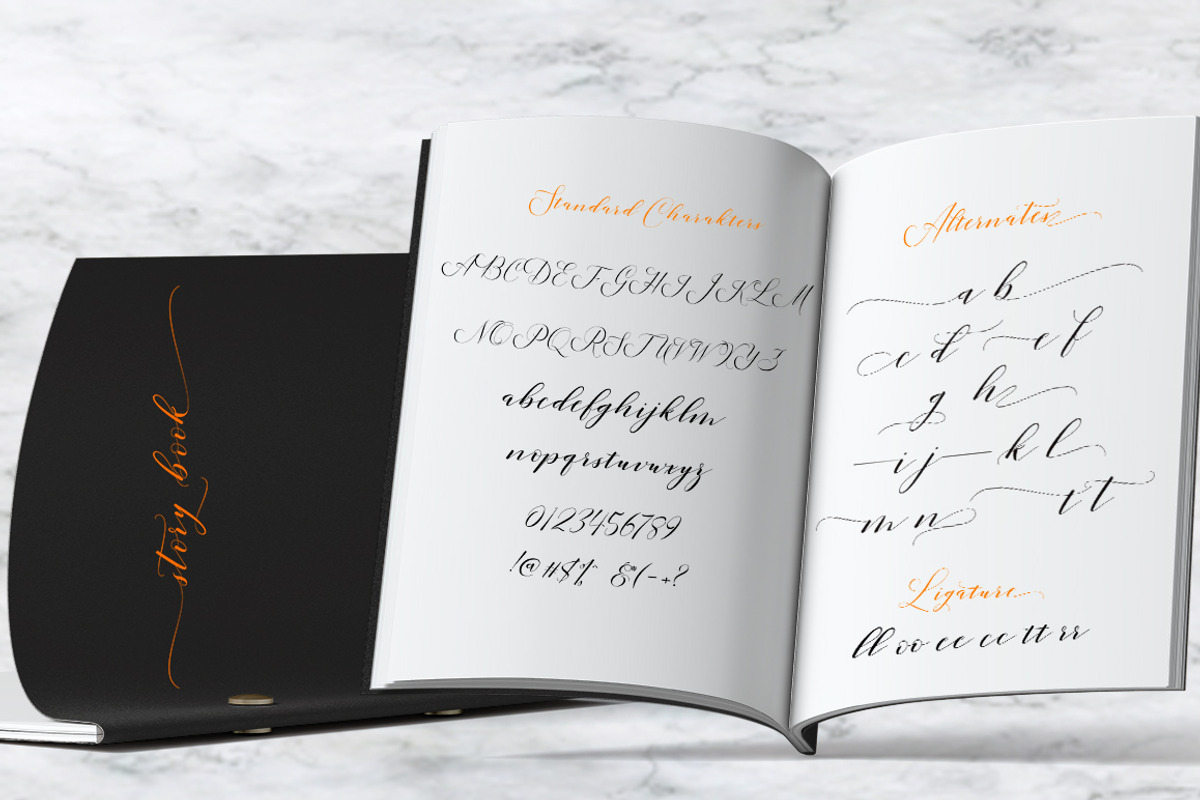 story book
Standard Charakters
ABCDEFGHIJKLM
NOPQRSTUVWXYZ
abcdefghijklm
nopqrstuvwxyz
0123456789
!@#$% &*(-+?
Alternates
a b
c d e f
g h
i j k l
m n t t
Ligature
ll oo ee cc tt rr